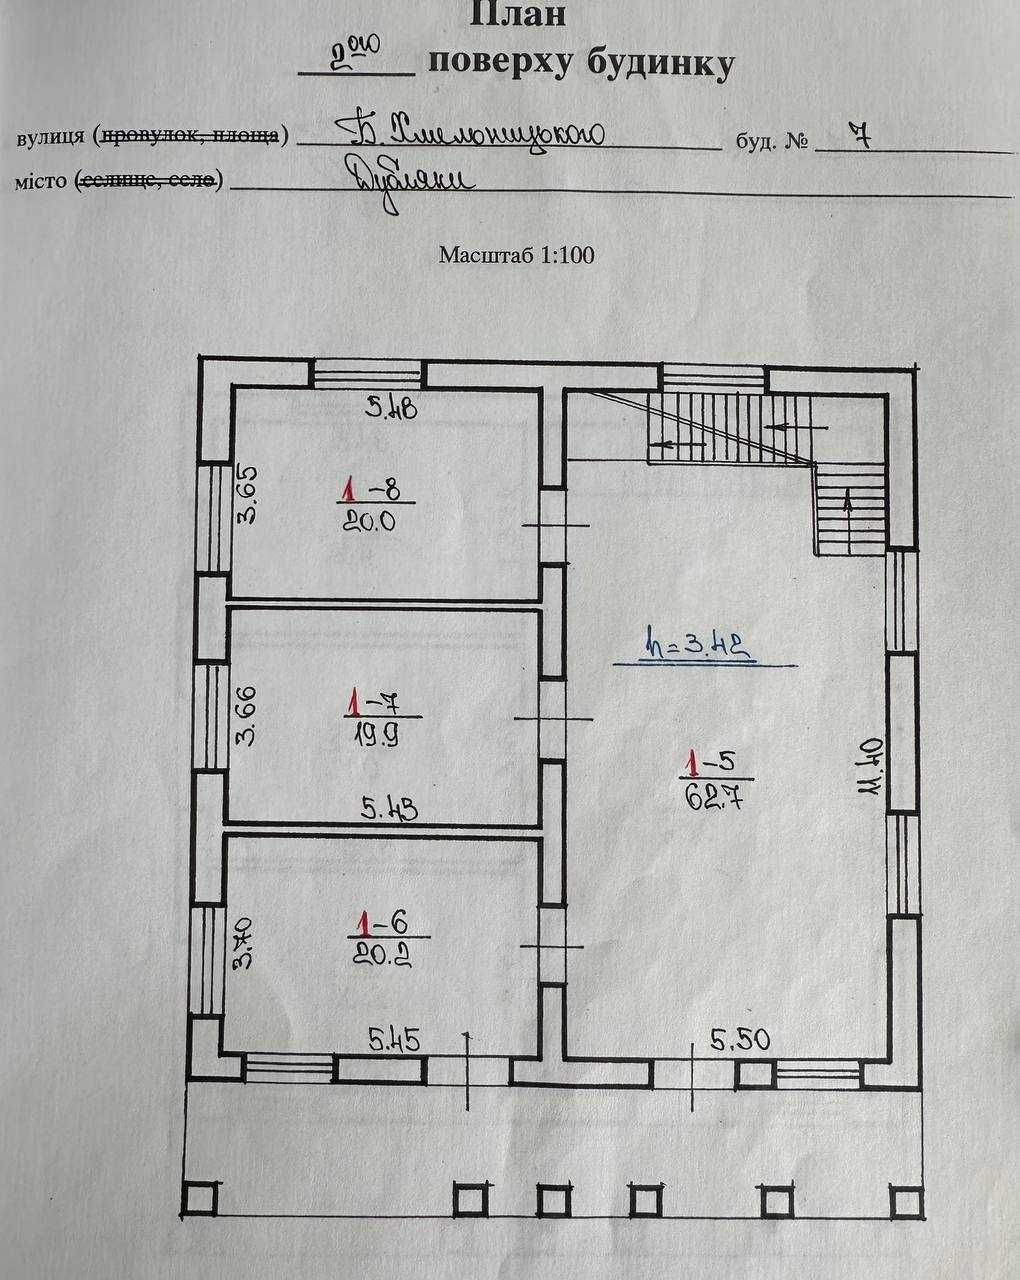 План
2ого поверху будинку
вулиця (провулок, площа) Б. Хмельницького буд. № 7
місто (селище, село) Дубляни
Масштаб 1:100
5.48
3.65
1-8
20.0
h=3.42
3.66
1-7
19.9
11.40
1-5
62.7
5.43
3.70
1-6
20.2
5.45
5.50